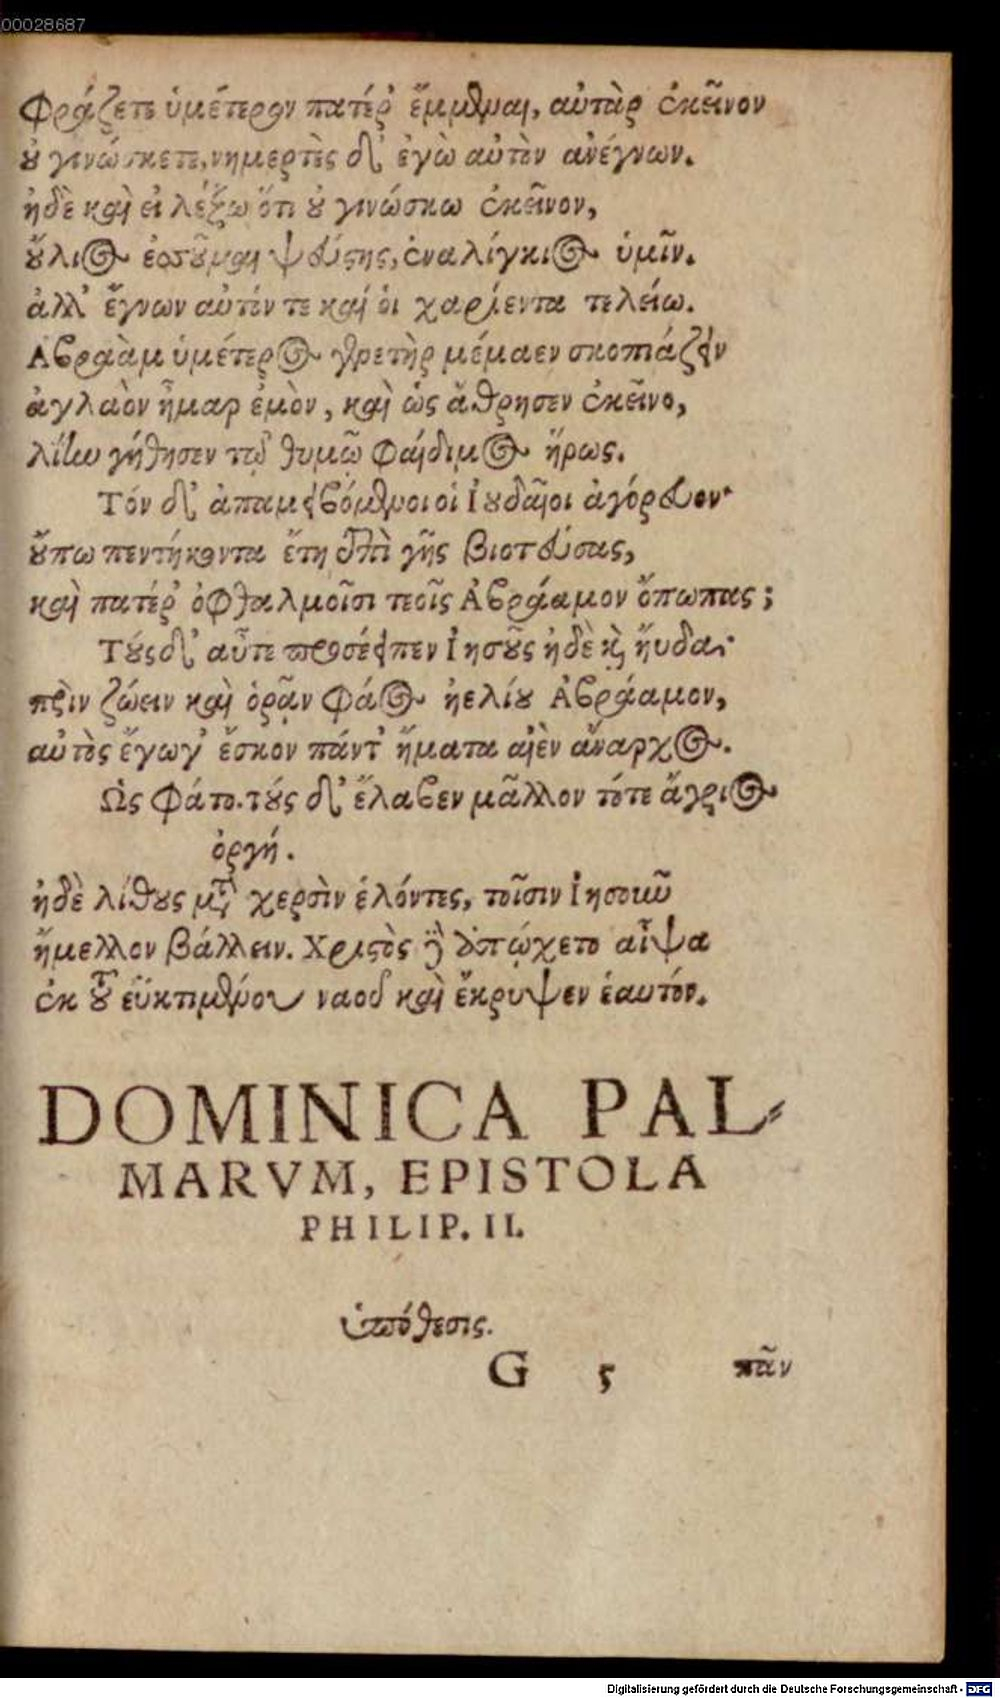 00028687
φράζετε ὑμέτερον πατέρ' ἔμμεναι, αὐτὰρ ἐκεῖνον
οὐ γινώσκετε, νημερτὲς δ' ἐγὼ αὐτὸν ἀνέγνων.
ἠδὲ καὶ εἰ λέξω ὅτι οὐ γινώσκω ἐκεῖνον,
οὔλιος ἐσσοῦμαι ψεύστης, ἐναλίγκιος ὑμῖν.
ἀλλ' ἔγνων αὐτόν τε καί οἱ χαρίεντα τελείω.
Ἀβραὰμ ὑμέτερος θρετὴρ μέμαεν σκοπιάζειν
ἀγλαὸν ἦμαρ ἐμὸν, καὶ ὡς ἄθρησεν ἐκεῖνο,
λίην γήθησεν τῷ θυμῷ φαίδιμος ἥρως.
Τόν δ' ἀπαμειβόμενοι οἱ Ἰουδαῖοι ἀγόρευον·
οὔπω πεντήκοντα ἔτη ἐπὶ γῆς βιοτεύσας,
καὶ πατέρ' ὀφθαλμοῖσι τεοῖς Ἀβράαμον ὄπωπας;
Τούς δ' αὖτε προσέειπεν Ἰησοῦς ἠδὲ καὶ ηὔδα·
πρὶν ζώειν καὶ ὁρᾷν φάος ἠελίου Ἀβράαμον,
αὐτὸς ἔγωγ' ἔσκον πάντ' ἤματα αἰὲν ἄναρχος.
Ὣς φάτο. τούς δ' ἔλαβεν μᾶλλον τότε ἄγριος
ὀργή.
ἠδὲ λίθους μετὰ χερσὶν ἑλόντες, τοῖσιν Ἰησοῦν
ἤμελλον βάλλειν. Χριστὸς δὲ ἀπῴχετο αἶψα
ἐκ τοῦ ἐϋκτιμένου ναοῦ καὶ ἔκρυψεν ἑαυτόν.
DOMINICA PAL-
MARVM, EPISTOLA
PHILIP. II.
ὑπόθεσις.
G 5 πᾶν
Digitalisierung gefördert durch die Deutsche Forschungsgemeinschaft - DFG